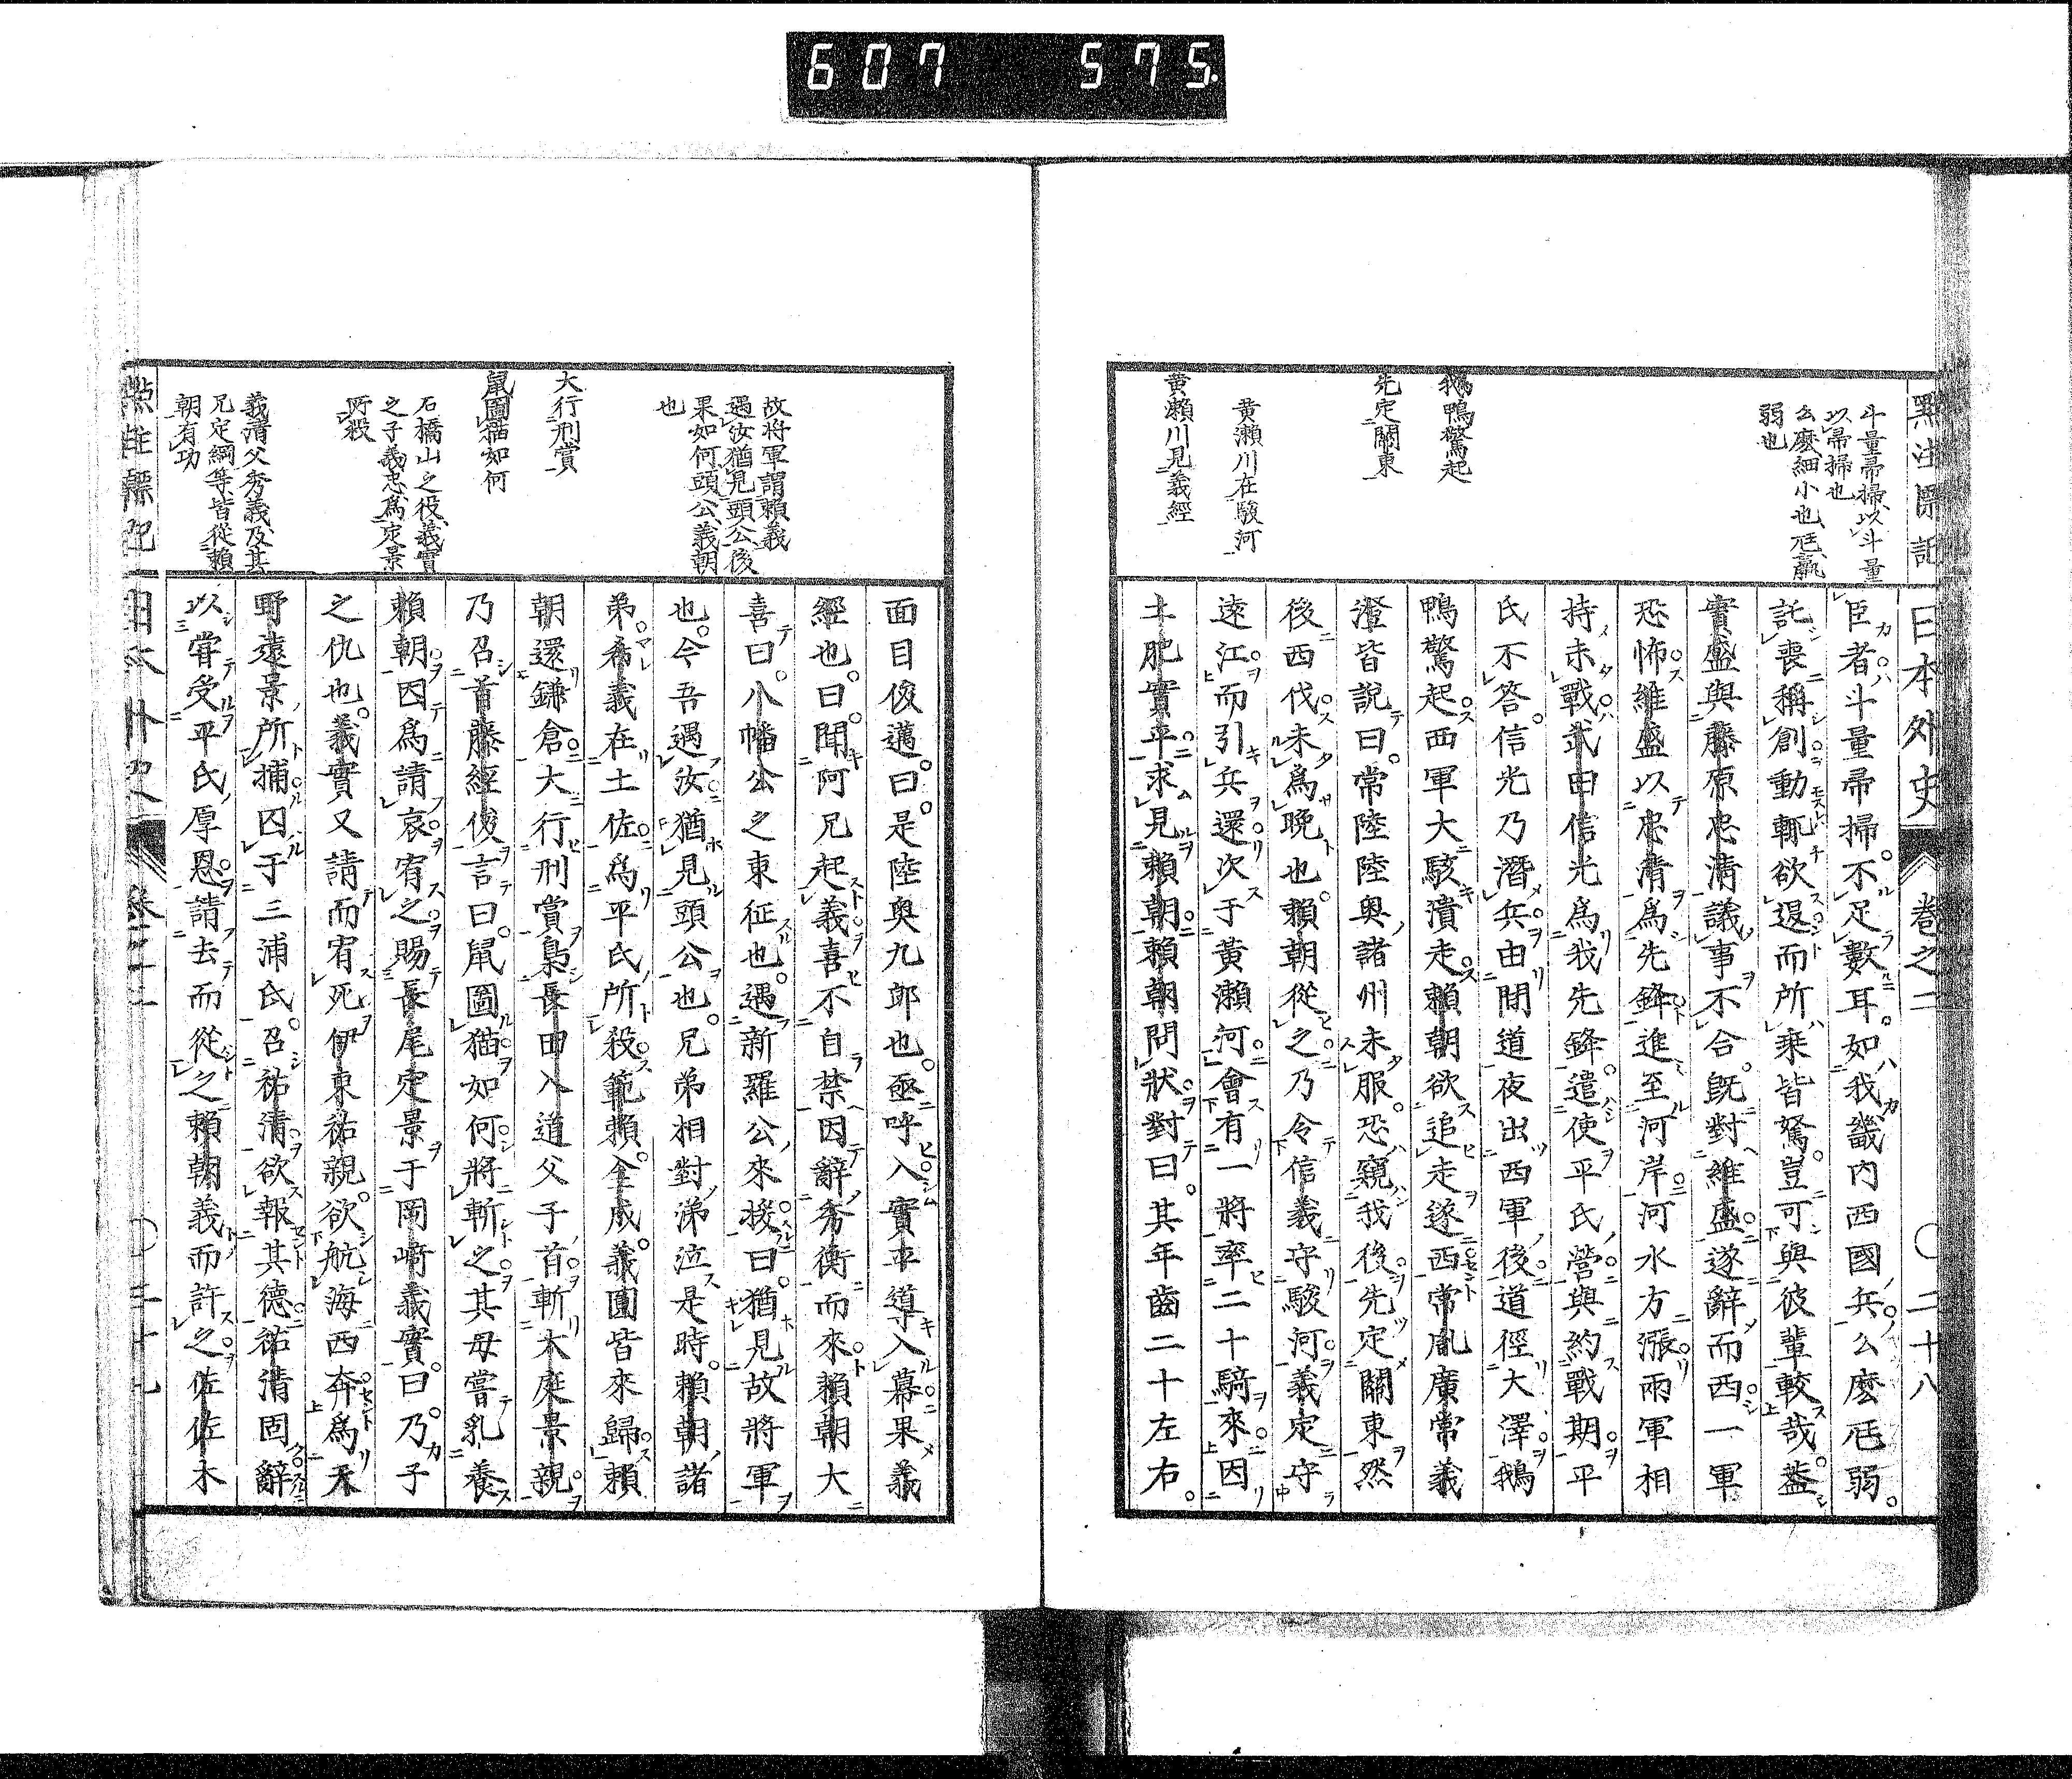 607 575.
日本外史 卷之二 〇二十八
斗量帚掃、以斗量
以帚掃也
么麼細小也、尩羸
弱也
鵝鴨驚起
先定關東
黄瀬川在駿河
黄瀬川見義經
臣者。斗量帚掃。不足數耳。如我畿内西國兵。么麼尩弱。
託喪稱創動輒欲退。而所乘皆駑。豈可與彼輩較哉。蓋
實盛與藤原忠清議事不合。既對維盛。遂辭而西。一軍
恐怖。維盛以忠清爲先鋒。進至河岸。河水方漲。兩軍相
持未戰。武田信光爲我先鋒。遣使平氏營。與約戰期。平
氏不答。信光乃潛兵由間道夜出西軍後。道徑大澤。鵝
鴨驚起。西軍大駭潰走。賴朝欲追走遂西。常胤廣常義
澄皆說曰。常陸陸奥諸州未服。恐窺我後。先定關東然
後西伐未爲晩也。賴朝從之。乃令信義守駿河。義定守
遠江。而引兵還次于黃瀬河。會有一將率二十騎來。因
土肥實平。求見賴朝。賴朝問狀。對曰。其年齒二十左右。
故將軍謂賴義
遇汝猶見頭公後
果如何頭公義朝
也
大行刑賞
鼠圖猫如何
石橋山之役、義實
之子義忠、爲定景
所殺
義清父秀義及其
兄定綱等、皆從賴
朝有功
面目俊邁。曰。是陸奥九郎也。亟呼入。實平導入幕。果義
經也。曰。聞阿兄起義。喜不自禁。因辭秀衡而來。賴朝大
喜曰。八幡公之東征也。遇新羅公來援。曰。猶見故將軍
也。今吾遇汝。猶見頭公也。兄弟相對涕泣。是時。賴朝諸
弟。希義在土佐。爲平氏所殺。範賴。全成。義圓皆來歸。賴
朝還鎌倉。大行刑賞。梟長田入道父子首。斬大庭景親。
乃召首藤經俊言曰。鼠圖猫如何。將斬之。其母嘗乳養
賴朝。因爲請哀。宥之。賜長尾定景于岡﨑義實。曰。乃子
之仇也。義實又請而宥死。伊東祐親。欲航海西奔。爲天
野遠景所捕。囚于三浦氏。召祐清。欲報其德。祐清固辭
以嘗受平氏厚恩。請去而從之。賴朝義而許之。佐佐木